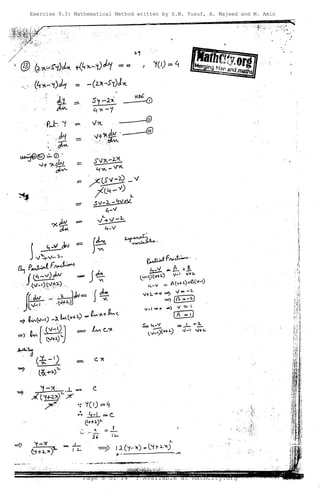 Exercise 9.3: Mathematical Method written by S.M. Yusuf, A. Majeed and M. Amin
MathCity.org
Merging Man and maths
(13) (2x-5y)dx + (4x-y)dy = 0 , Y(1) = 4
(4x-y)dy = -(2x-5y)dx
dy/dx = (5y-2x)/(4x-y) ——①
Put y = vx ——②
dy/dx = v + x dv/dx ——③
v + x dv/dx = (5vx-2x)/(4x-vx)
= x(5v-2)/x(4-v) - v
= (5v-2-4v+v²)/(4-v)
x dv/dx = (v²+v-2)/(4-v)
∫ (4-v)dv/(v²+v-2) = ∫ dx/x separating variables.
By Partial Fractions
∫ (4-v)dv/((v-1)(v+2)) = ∫ dx/x
∫ [dv/(v-1) - 2/(v+2)] dv = ∫ dx/x
⇒ ln(v-1) - 2 ln(v+2) = ln x + ln c
⇒ ln [(v-1)/(v+2)²] = ln cx
Partial Fraction
(4-v)/((v-1)(v+2)) = A/(v-1) + B/(v+2)
4-v = A(v+2)+B(v-1)
v+2=0 ⇒ v=-2
⇒ B=-2
v-1=0 ⇒ v=1
A=1
So (4-v)/((v-1)(v+2)) = 1/(v-1) - 2/(v+2)
(y/x - 1)/(y/x + 2)² = cx
⇒ y-x = c
(y+2x)²
∵ Y(1) = 4
∴ (4-1)/(4+2)² = c
c = 3/36 = 1/12
⇒ (y-x)/(y+2x)² = 1/12 ⇒ 12(y-x) = (y+2x)²
Page 8 of 14 | Available at MathCity.org